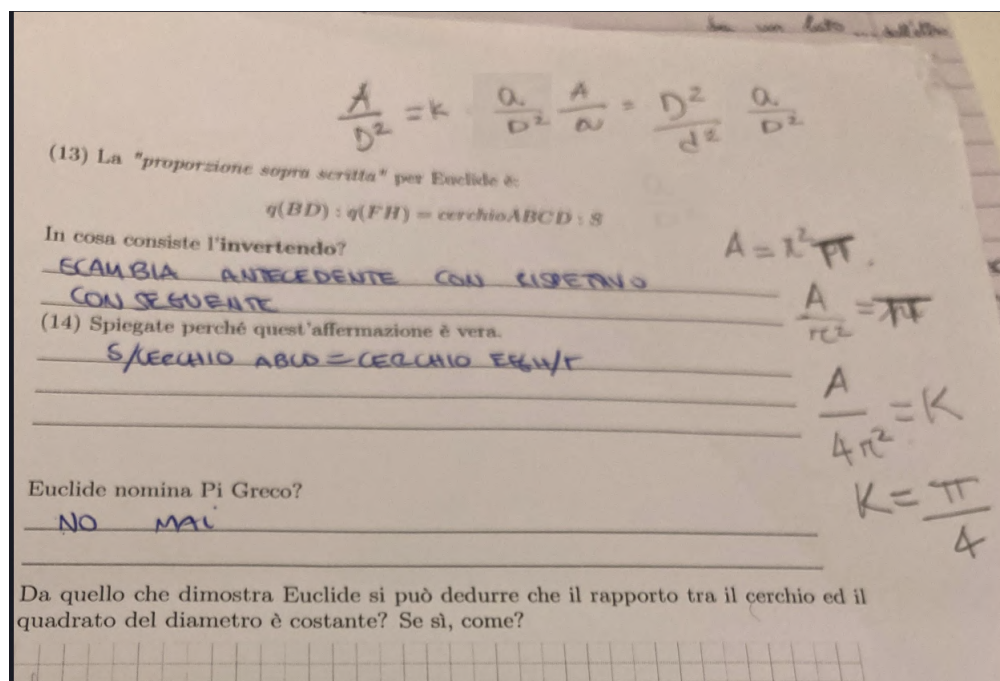 un lato ... dall'altro
A/D² = k   a/D²   A/a = D²/d²   a/D²
(13) La "proporzione sopra scritta" per Euclide è:
q(BD) : q(FH) = cerchioABCD : S
In cosa consiste l'invertendo?
SCAMBIA ANTECEDENTE CON RISPETTIVO
CONSEGUENTE
A = r²π.
A/r² = π
(14) Spiegate perché quest'affermazione è vera.
S/CERCHIO ABCD = CERCHIO EFGH/T
A/4r² = K
K = π/4
Euclide nomina Pi Greco?
NO MAI
Da quello che dimostra Euclide si può dedurre che il rapporto tra il cerchio ed il
quadrato del diametro è costante? Se sì, come?